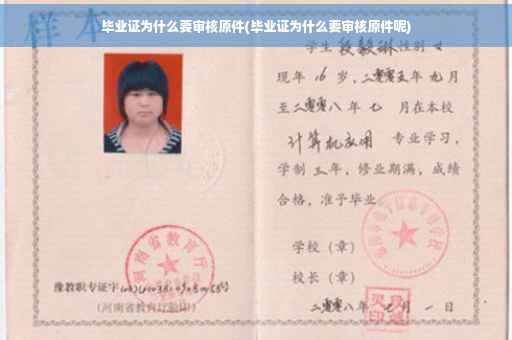 样本
毕业证为什么要审核原件(毕业证为什么要审核原件呢)
学生 段毅琳 性别 女
现年 16 岁，二零零五年 九 月
至二零零八年 七 月在本校
计算机应用 专业学习，
学制 三 年，修业期满，成绩
合格，准予毕业。
学校（章）
校长（章）
二零零八年 七 月 一 日
河南省教育厅
豫教职专证字
(河南省教育厅验印)